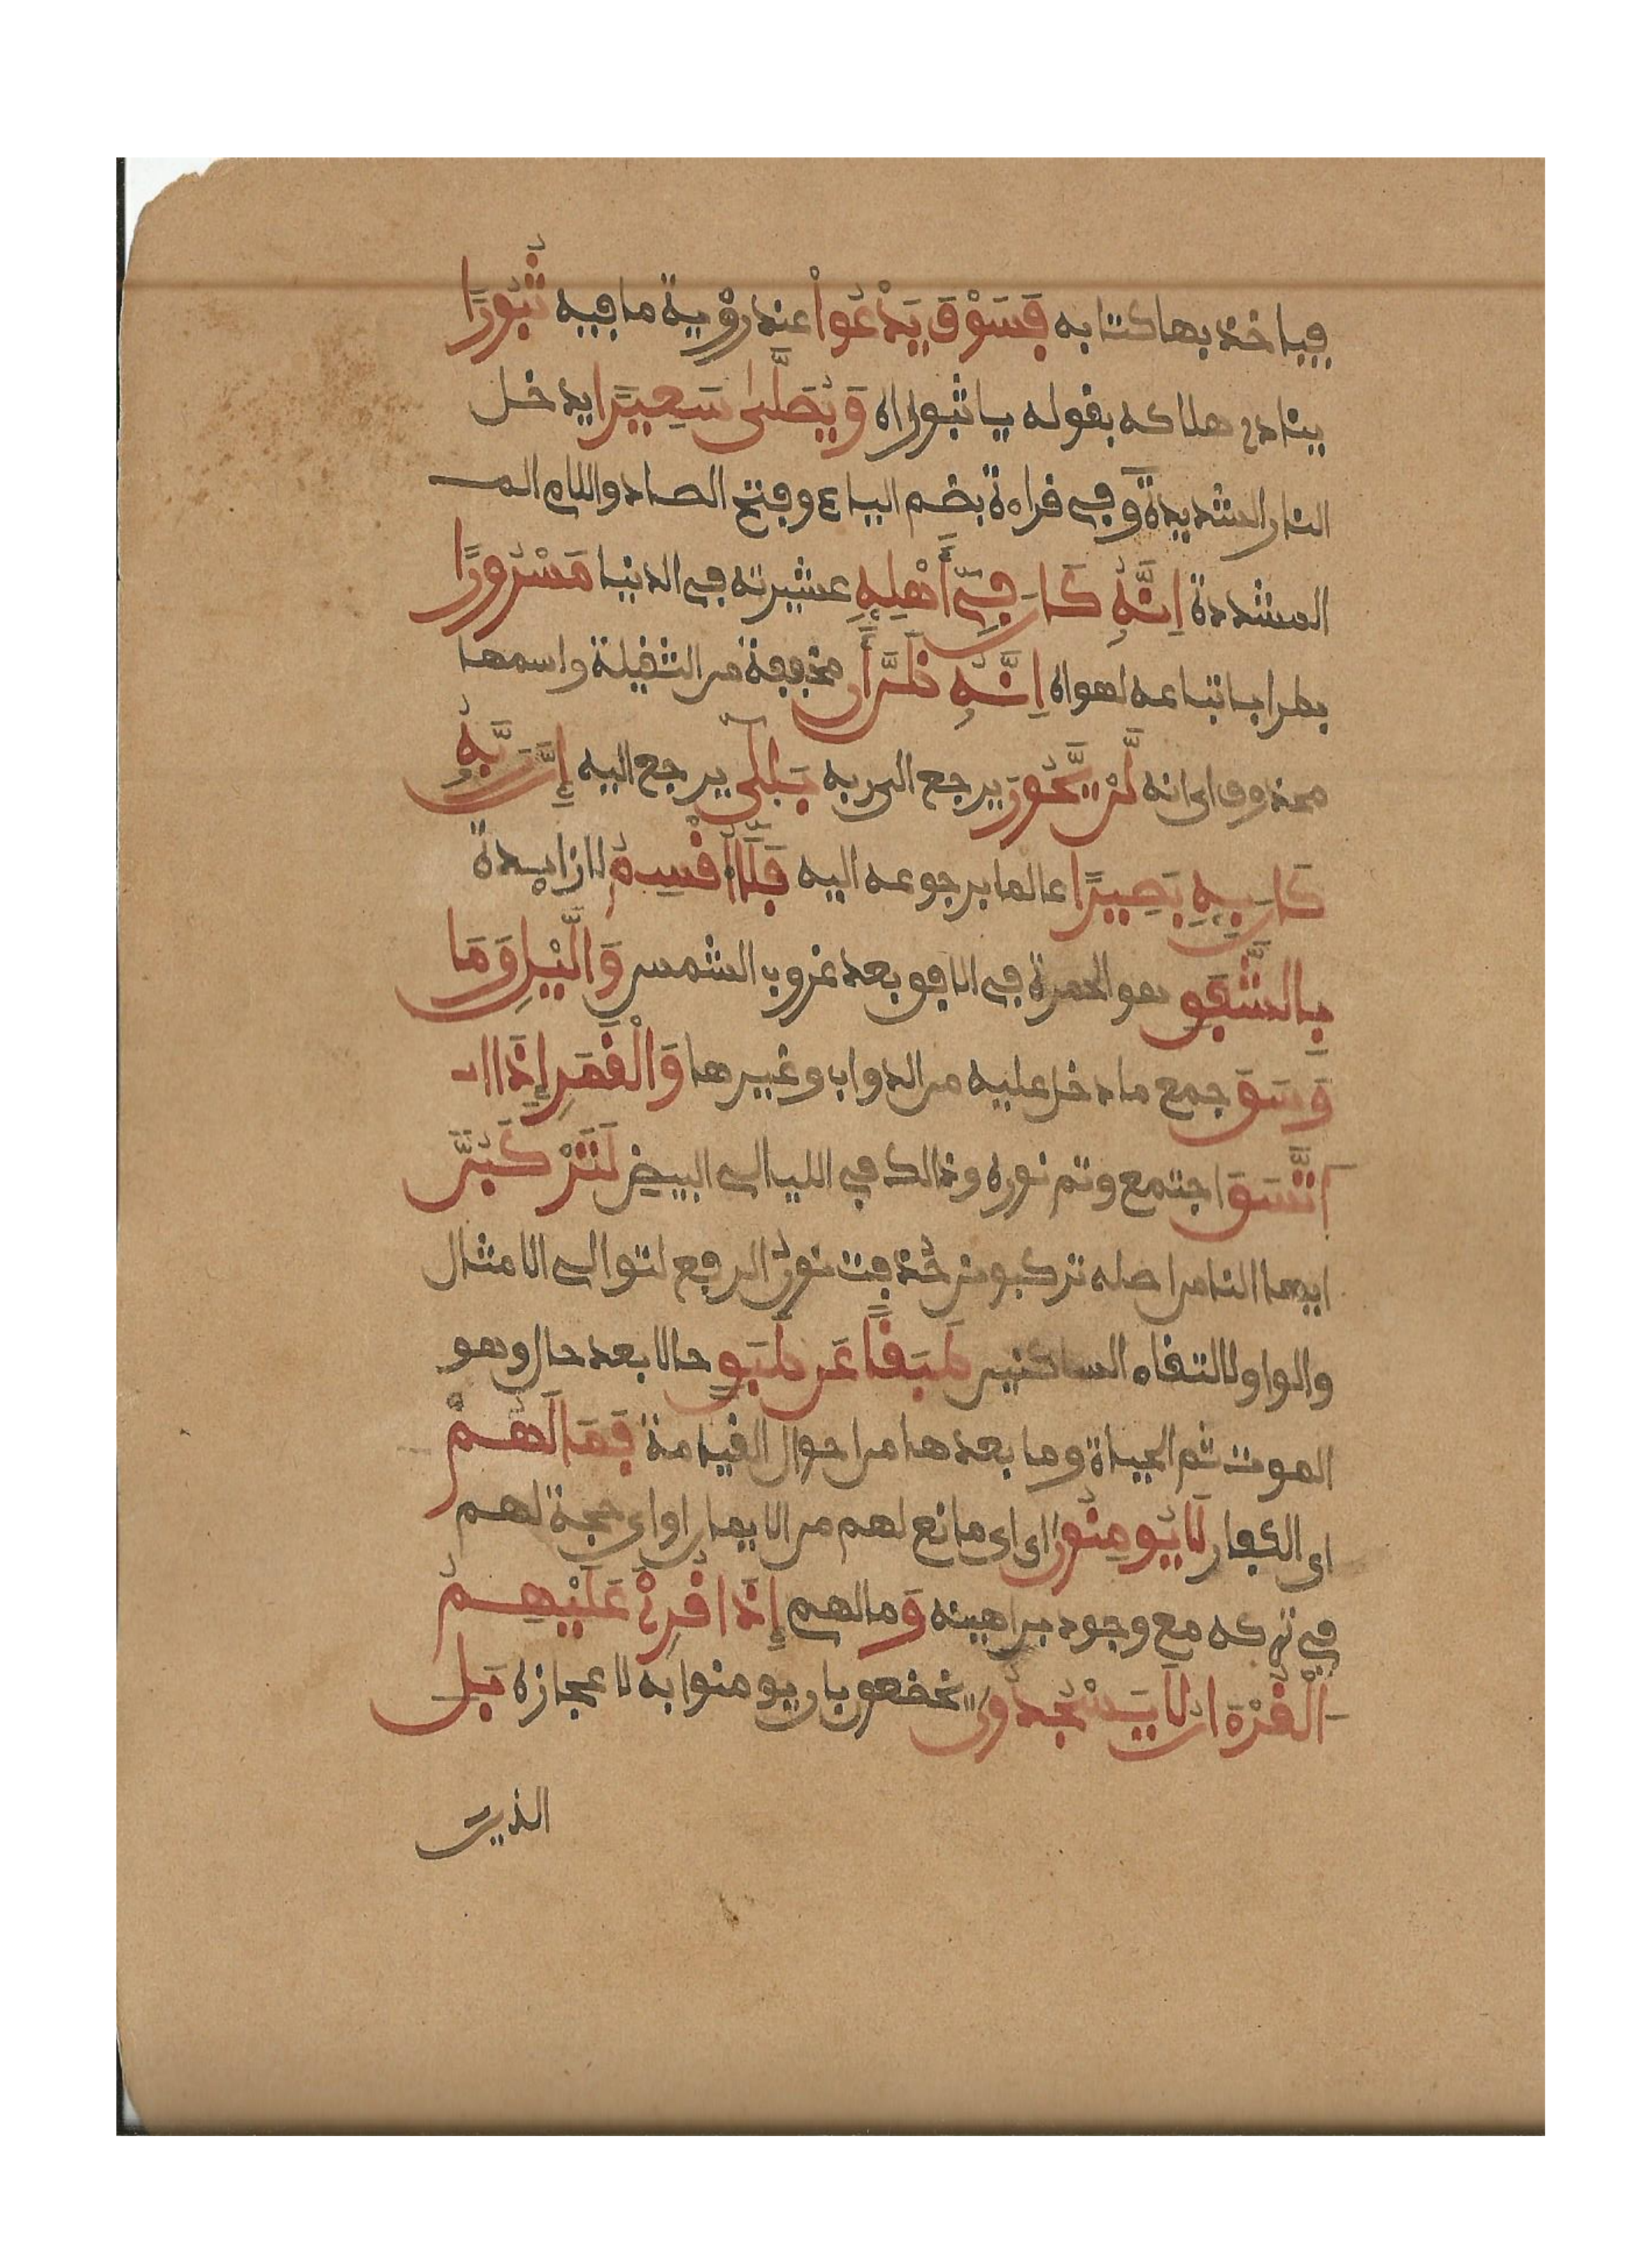 فياخذ بها كتابه فَسَوْفَ يَدْعُواْ عند رؤية ما فيه ثُبُورًا
ينادى هلاكه بقوله يا ثبوراه وَيُصَلَّىٰ سَعِيرًا يدخل
النار الشديدة وفي قراءة بضم الياء وفتح الصاد واللام الم
المشددة اِنَّهُۥ كَانَ فِےٓ أَهْلِهِۦ عشيرته في الدنيا مَسْرُورًا
بطرا باتباعه لهواه اِنَّهُۥ ظَنَّ أَن مخففة من الثقيلة واسمها
محذوف اى انه لَّنْ يَّحُورَ يرجع الى ربه بَلَىٰٓ يرجع اليه إِنَّ رَبَّهُۥ
كَانَ بِهِۦ بَصِيرًا عالما برجوعه اليه فَلَآ أُقْسِمُ لا زايدة
بِالشَّفَقِ هو الحمرة في الافق بعد غروب الشمس وَالَّيْلِ وَمَا
وَسَقَ جمع ما دخل عليه من الدواب وغيرها وَالْقَمَرِ إِذَا ا
اَتَّسَقَ اجتمع وتم نوره وذالك في الليالي البيض لَتَرْكَبُنَّ
ايها الناس اصله تركبونن حُذفت نون الرفع لتوالي الامثال
والواو لالتقاء الساكنين طَبَقًا عَن طَبَقٍ حالا بعد حال وهو
الموت ثم الحياة وما بعدها من احوال القيامة فَمَا لَهُمْ
اى الكفار لَا يُومِنُونَ اى اى مانع لهم من الايمان او اى حجة لهم
في تركه مع وجود براهينه وَمالهم إِذَا قُرِئَ عَلَيْهِمُ
الْقُرْءَانُ لَا يَسْجُدُونَ يخضعون بان يومنوا به لاعجازه بَلِ
الذين